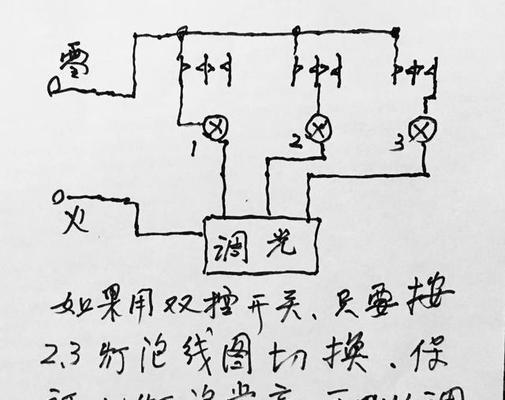 零
1
2
3
火
调光
如果用双控开关、只要按
2.3灯泡线图切换、保